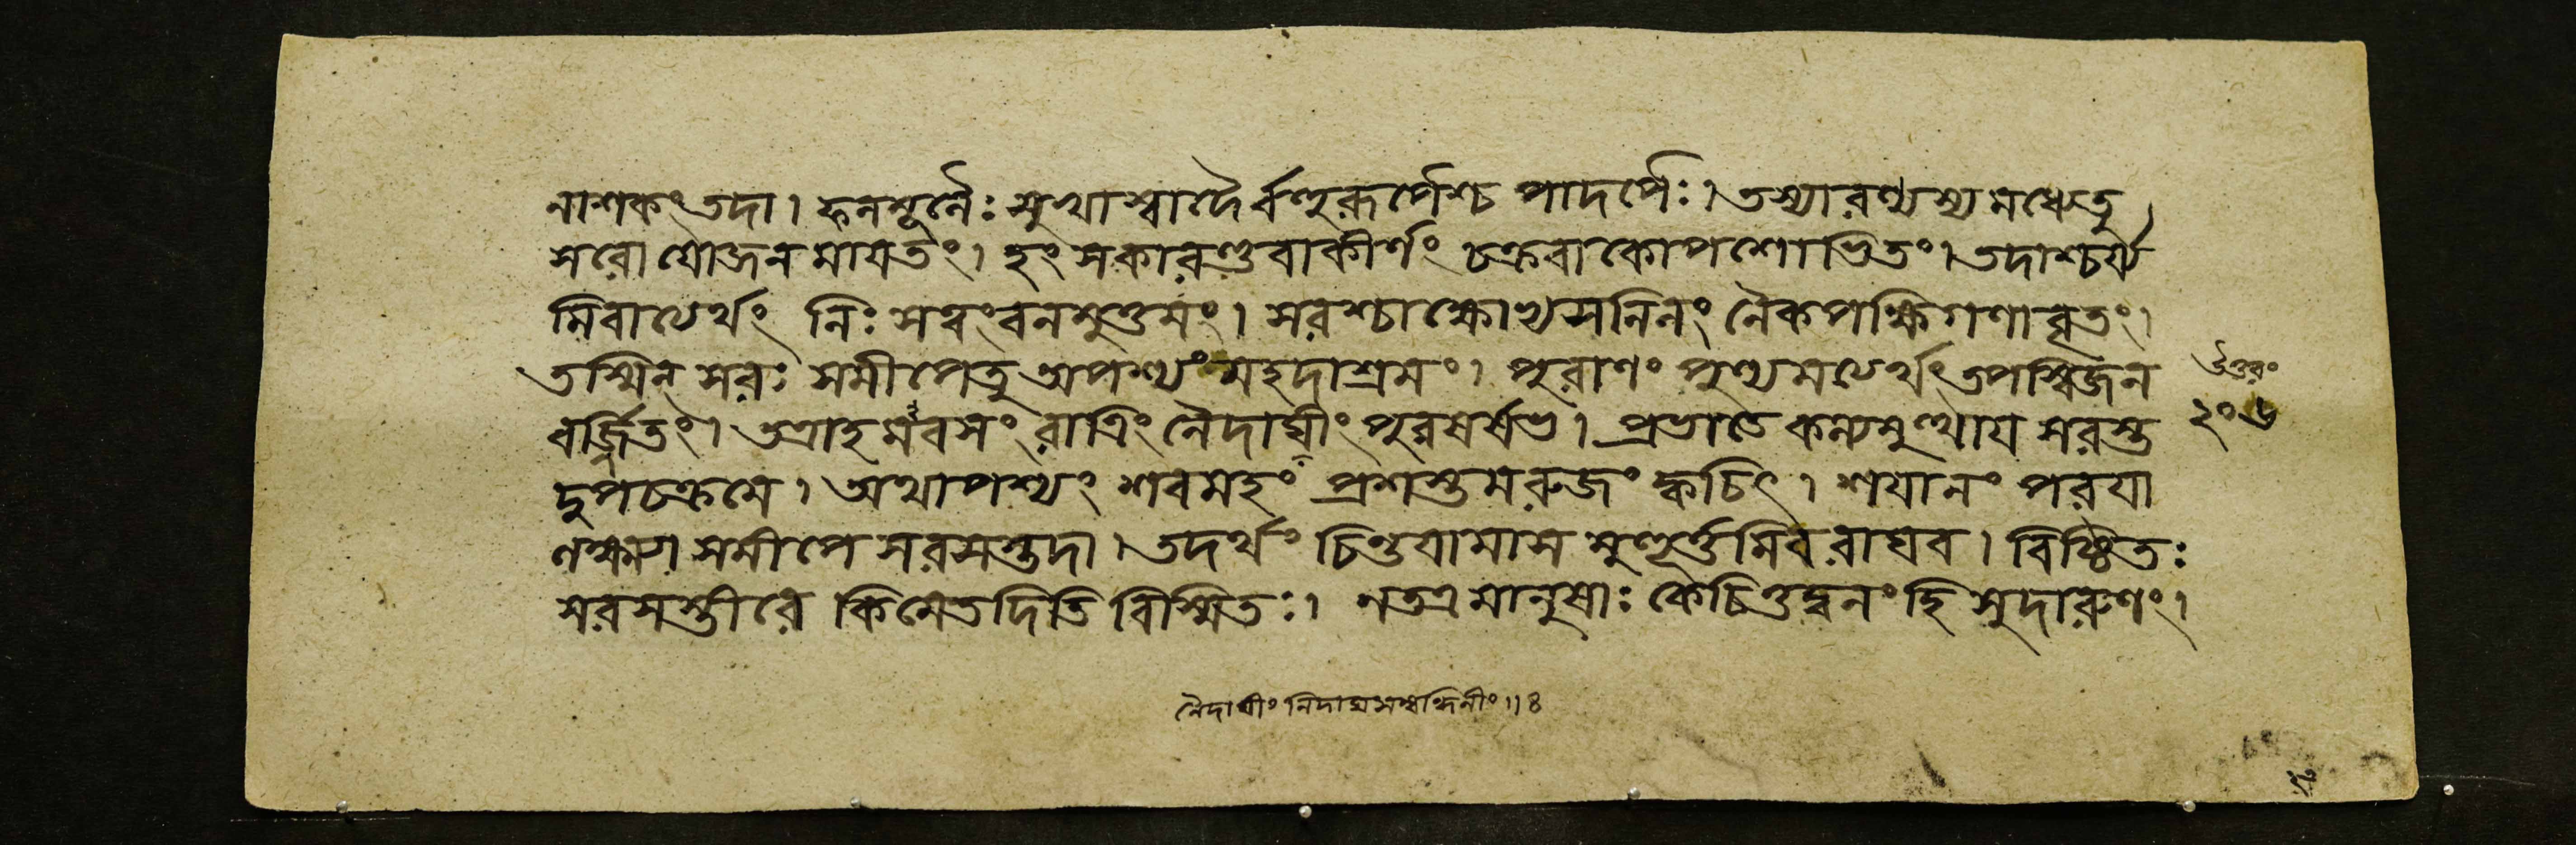 নাশকংতদা। ফলমূলৈঃ সুখাস্বাদৈর্বহুরূপৈশ্চ পাদপৈঃ। তস্যারণ্যস্যমধ্যেতু
সরো যোজনমাযতং। হংসকারণ্ডবাকীর্ণং চক্রবাকোপশোভিতং। তদাশ্চর্য
মিবাত্যর্থং নিঃসত্বংবনমুত্তমং। সরশ্চাক্ষোভ্যসলিলং নৈকপক্ষিগণাবৃতং।
তস্মিন্ সরঃ সমীপেতু অপশ্যং মহদাশ্রমং। পুরাণং পুণ্যমত্যর্থংতপস্বিজন
বর্জ্জিতং। তত্রাহমবসং রাত্রিং নৈদাঘীং পুরুষর্ষভ। প্রভাতে কল্যমুত্থায সরস্ত
দুপচক্রমে। অথাপশ্যং শবমহং প্রশস্তমরুজং ক্বচিৎ। শযানং পরযা
লক্ষ্ম্যা সমীপে সরসস্তদা। তদর্থং চিন্তযামাস মুহূর্ত্তমিব রাঘব। বিষ্ঠিতঃ
সরসস্তীরে কিমেতদিতি বিস্মিতঃ। নতত্র মানুষাঃ কেচিত্তদ্বনং হি সুদারুণং।
উত্তরং
২০৬
নৈদাঘীং নিদাঘসম্বন্ধিনীং॥৪